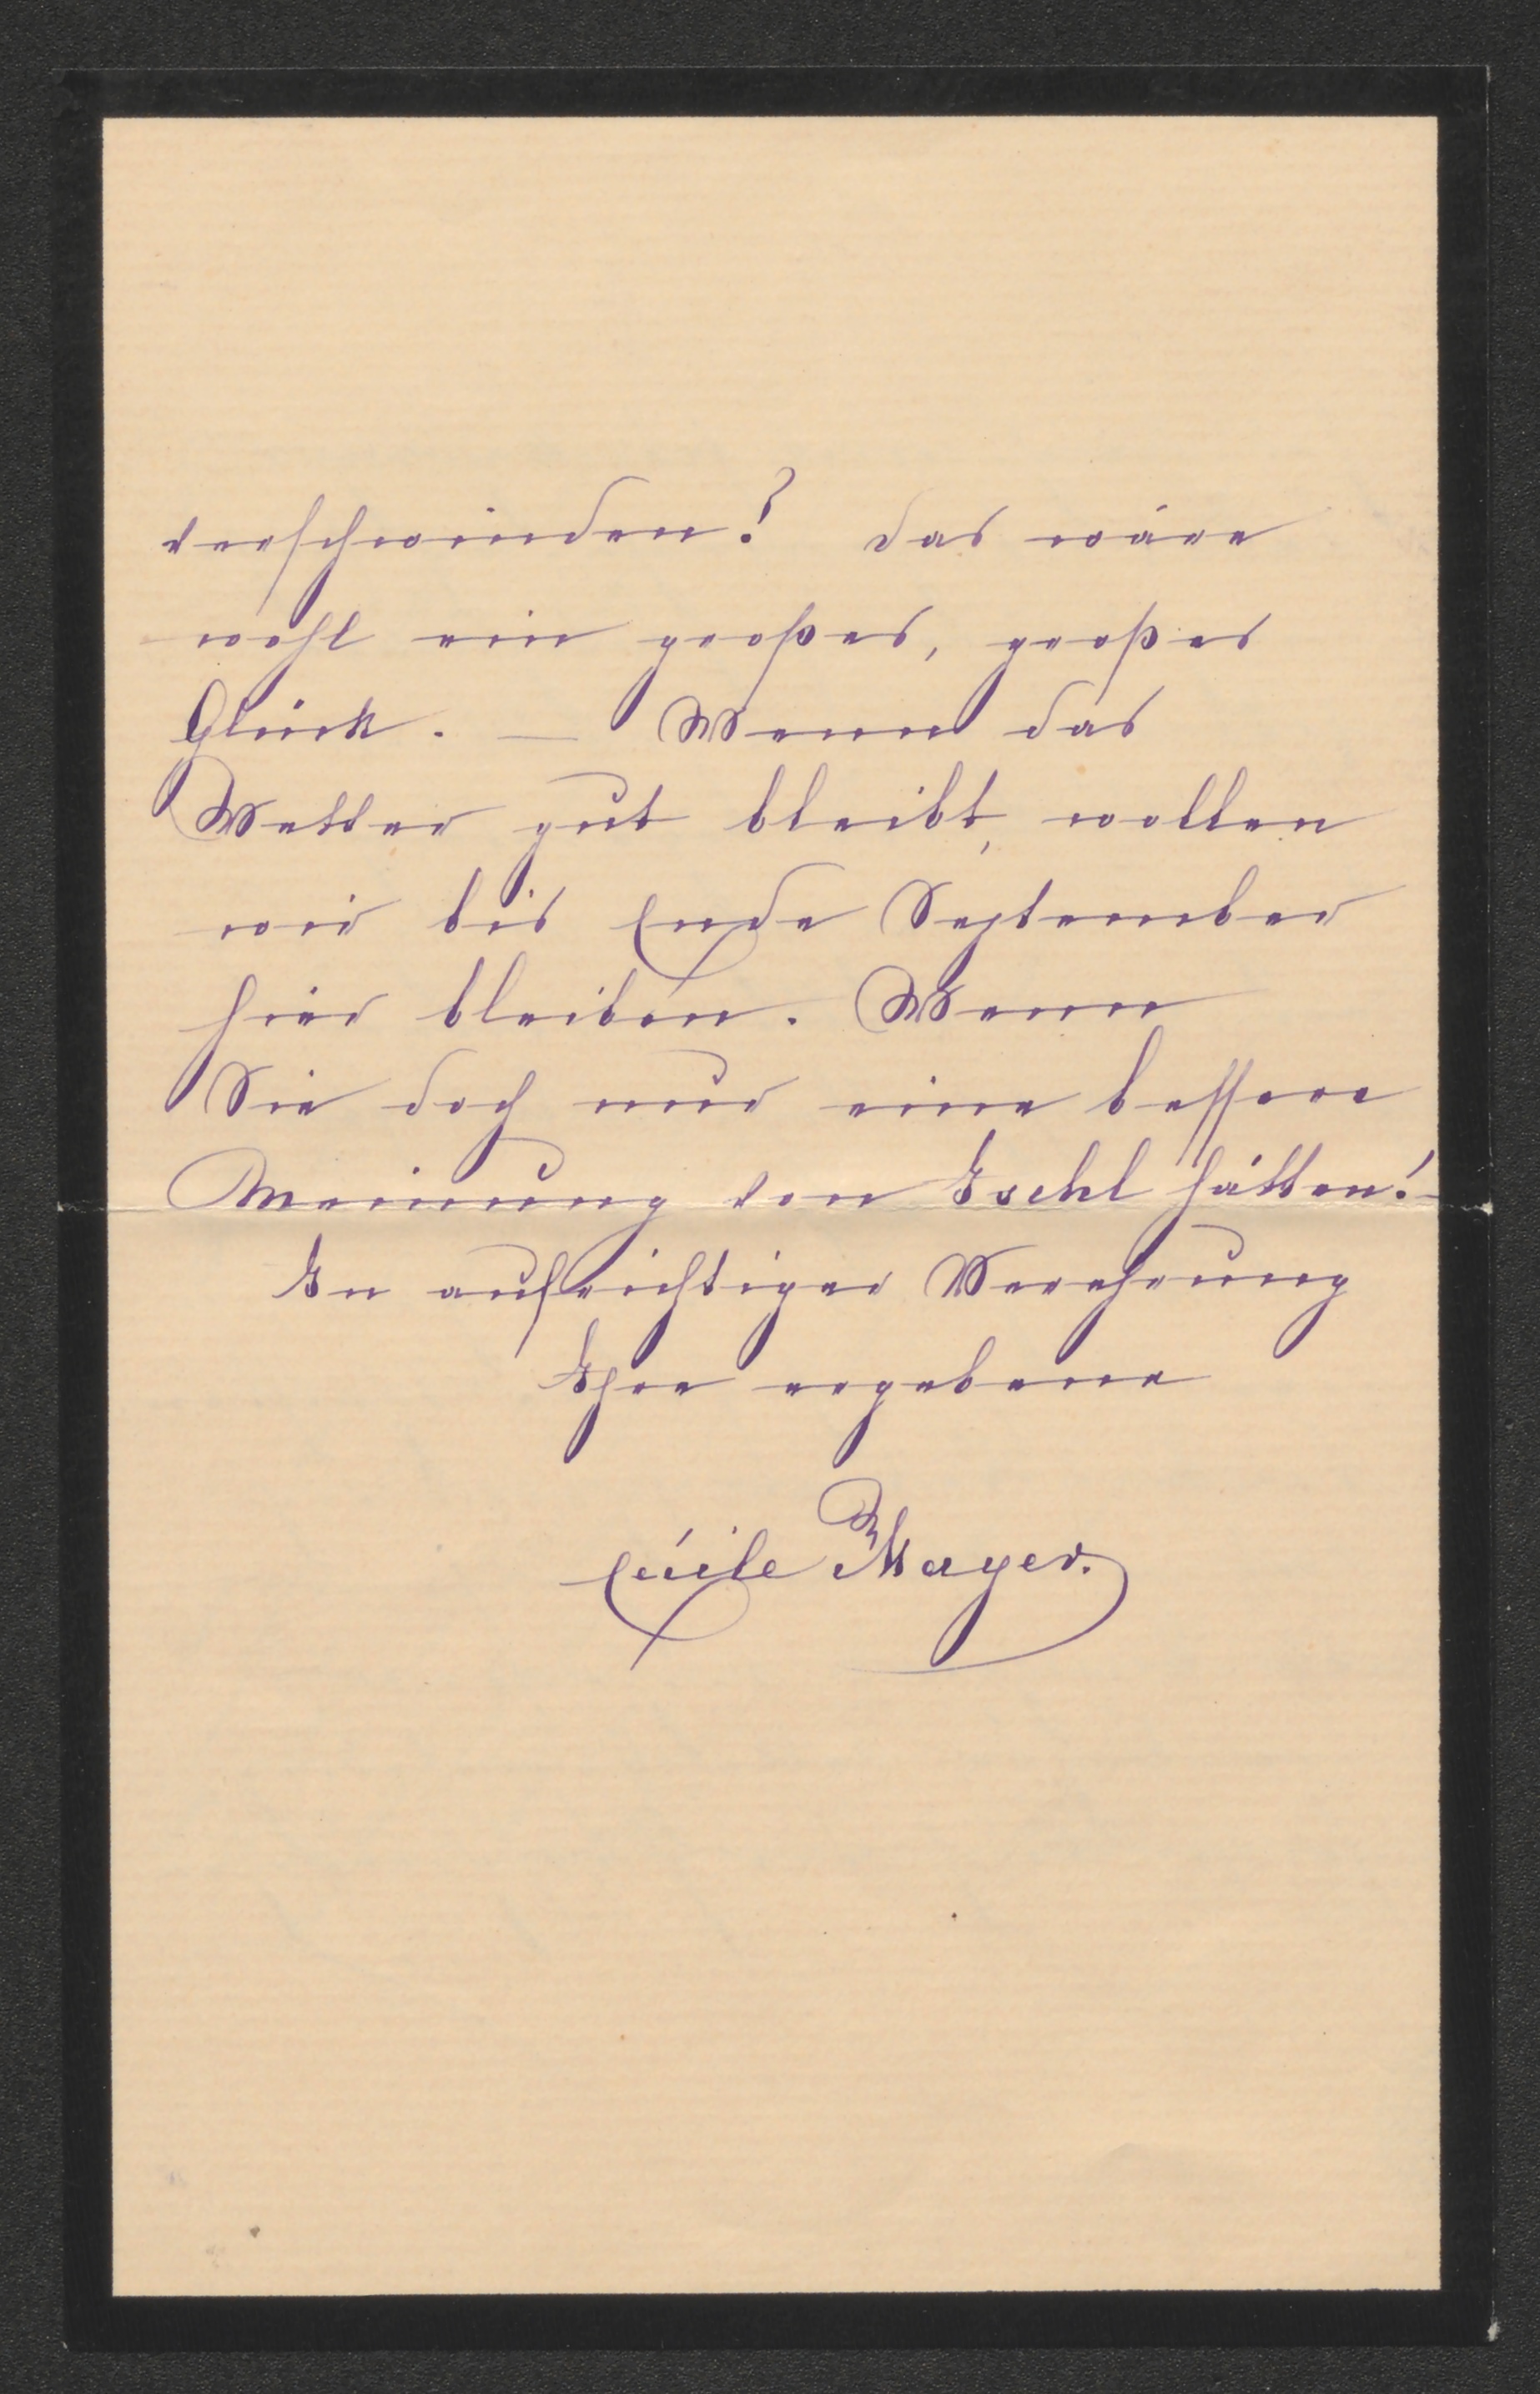 verschwinden? das wäre
wohl ein großes, großes
Glück. — Wenn das
Wetter gut bleibt, wollen
wir bis Ende September
hier bleiben. Wenn
Sie doch nur eine bessere
Meinung von Ischl hätten! –
In aufrichtiger Verehrung
Ihre ergebene
Cécile Mayer.